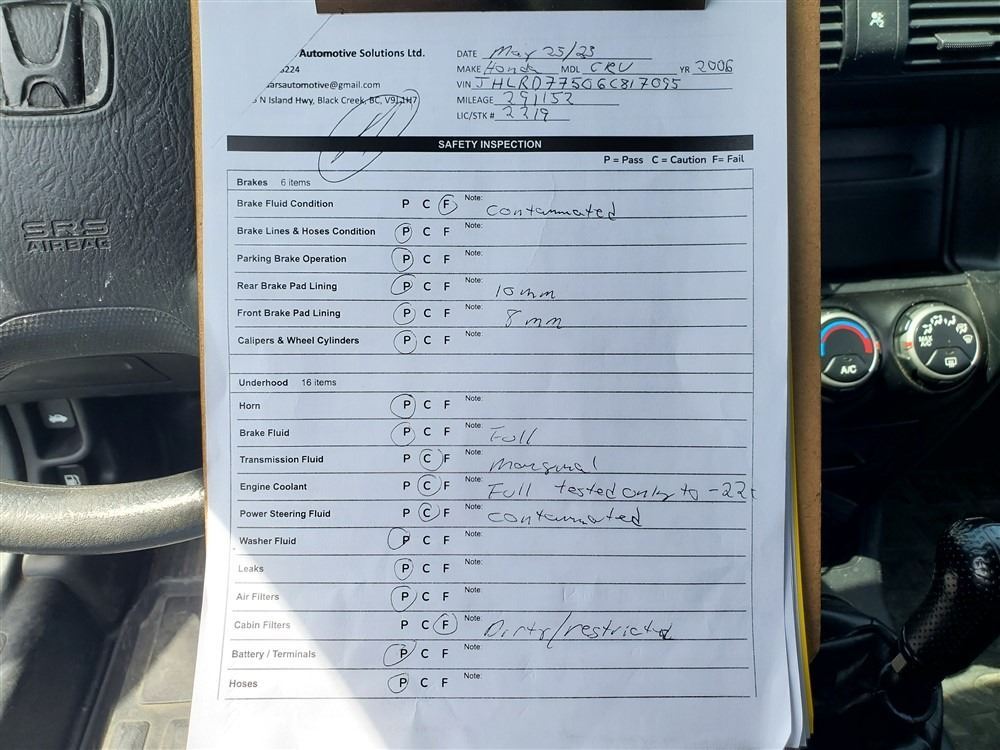 Automotive Solutions Ltd.
DATE May 25/23
3224
MAKE Honda MDL CRV YR 2006
arsautomotive@gmail.com
VIN JHLRD77506C817095
N Island Hwy, Black Creek, BC, V9J 1H7
MILEAGE 291152
LIC/STK # 2219
SAFETY INSPECTION
P = Pass C = Caution F= Fail
Brakes 6 items
Brake Fluid Condition P C F Note: Contaminated
Brake Lines & Hoses Condition P C F Note:
Parking Brake Operation P C F Note:
Rear Brake Pad Lining P C F Note: 10 mm
Front Brake Pad Lining P C F Note: 8 mm
Calipers & Wheel Cylinders P C F Note:
Underhood 16 items
Horn P C F Note:
Brake Fluid P C F Note: Full
Transmission Fluid P C F Note: Marginal
Engine Coolant P C F Note: Full tested only to -22
Power Steering Fluid P C F Note: Contaminated
Washer Fluid P C F Note:
Leaks P C F Note:
Air Filters P C F Note:
Cabin Filters P C F Note: Dirty/restricted
Battery / Terminals P C F Note:
Hoses P C F Note:
SRS
AIRBAG
MAX
A/C
A/C